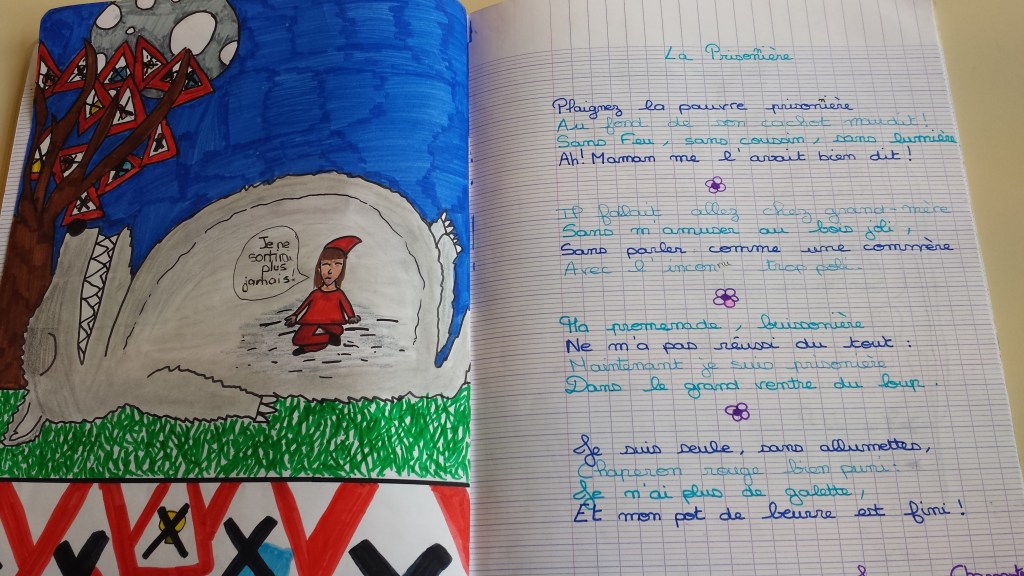 Je ne
sortirai
plus
jamais!
La Prisonnière
Plaignez la pauvre prisonnière
Au fond de son cachot maudit!
Sans Feu, sans coussin, sans lumière
Ah! Maman me l'avait bien dit!
Il falait allez chez grand-mère
Sans m'amuser au bois joli,
Sans parler comme une commère
Avec l'inconnu trop poli.
Ma promenade, buissonière
Ne m'a pas réussi du tout:
Maintenant je suis prisonière
Dans le grand ventre du loup.
Je suis seule, sans allumettes,
Chaperon rouge bien puni:
Je n'ai plus de galette,
Et mon pot de beurre est fini!